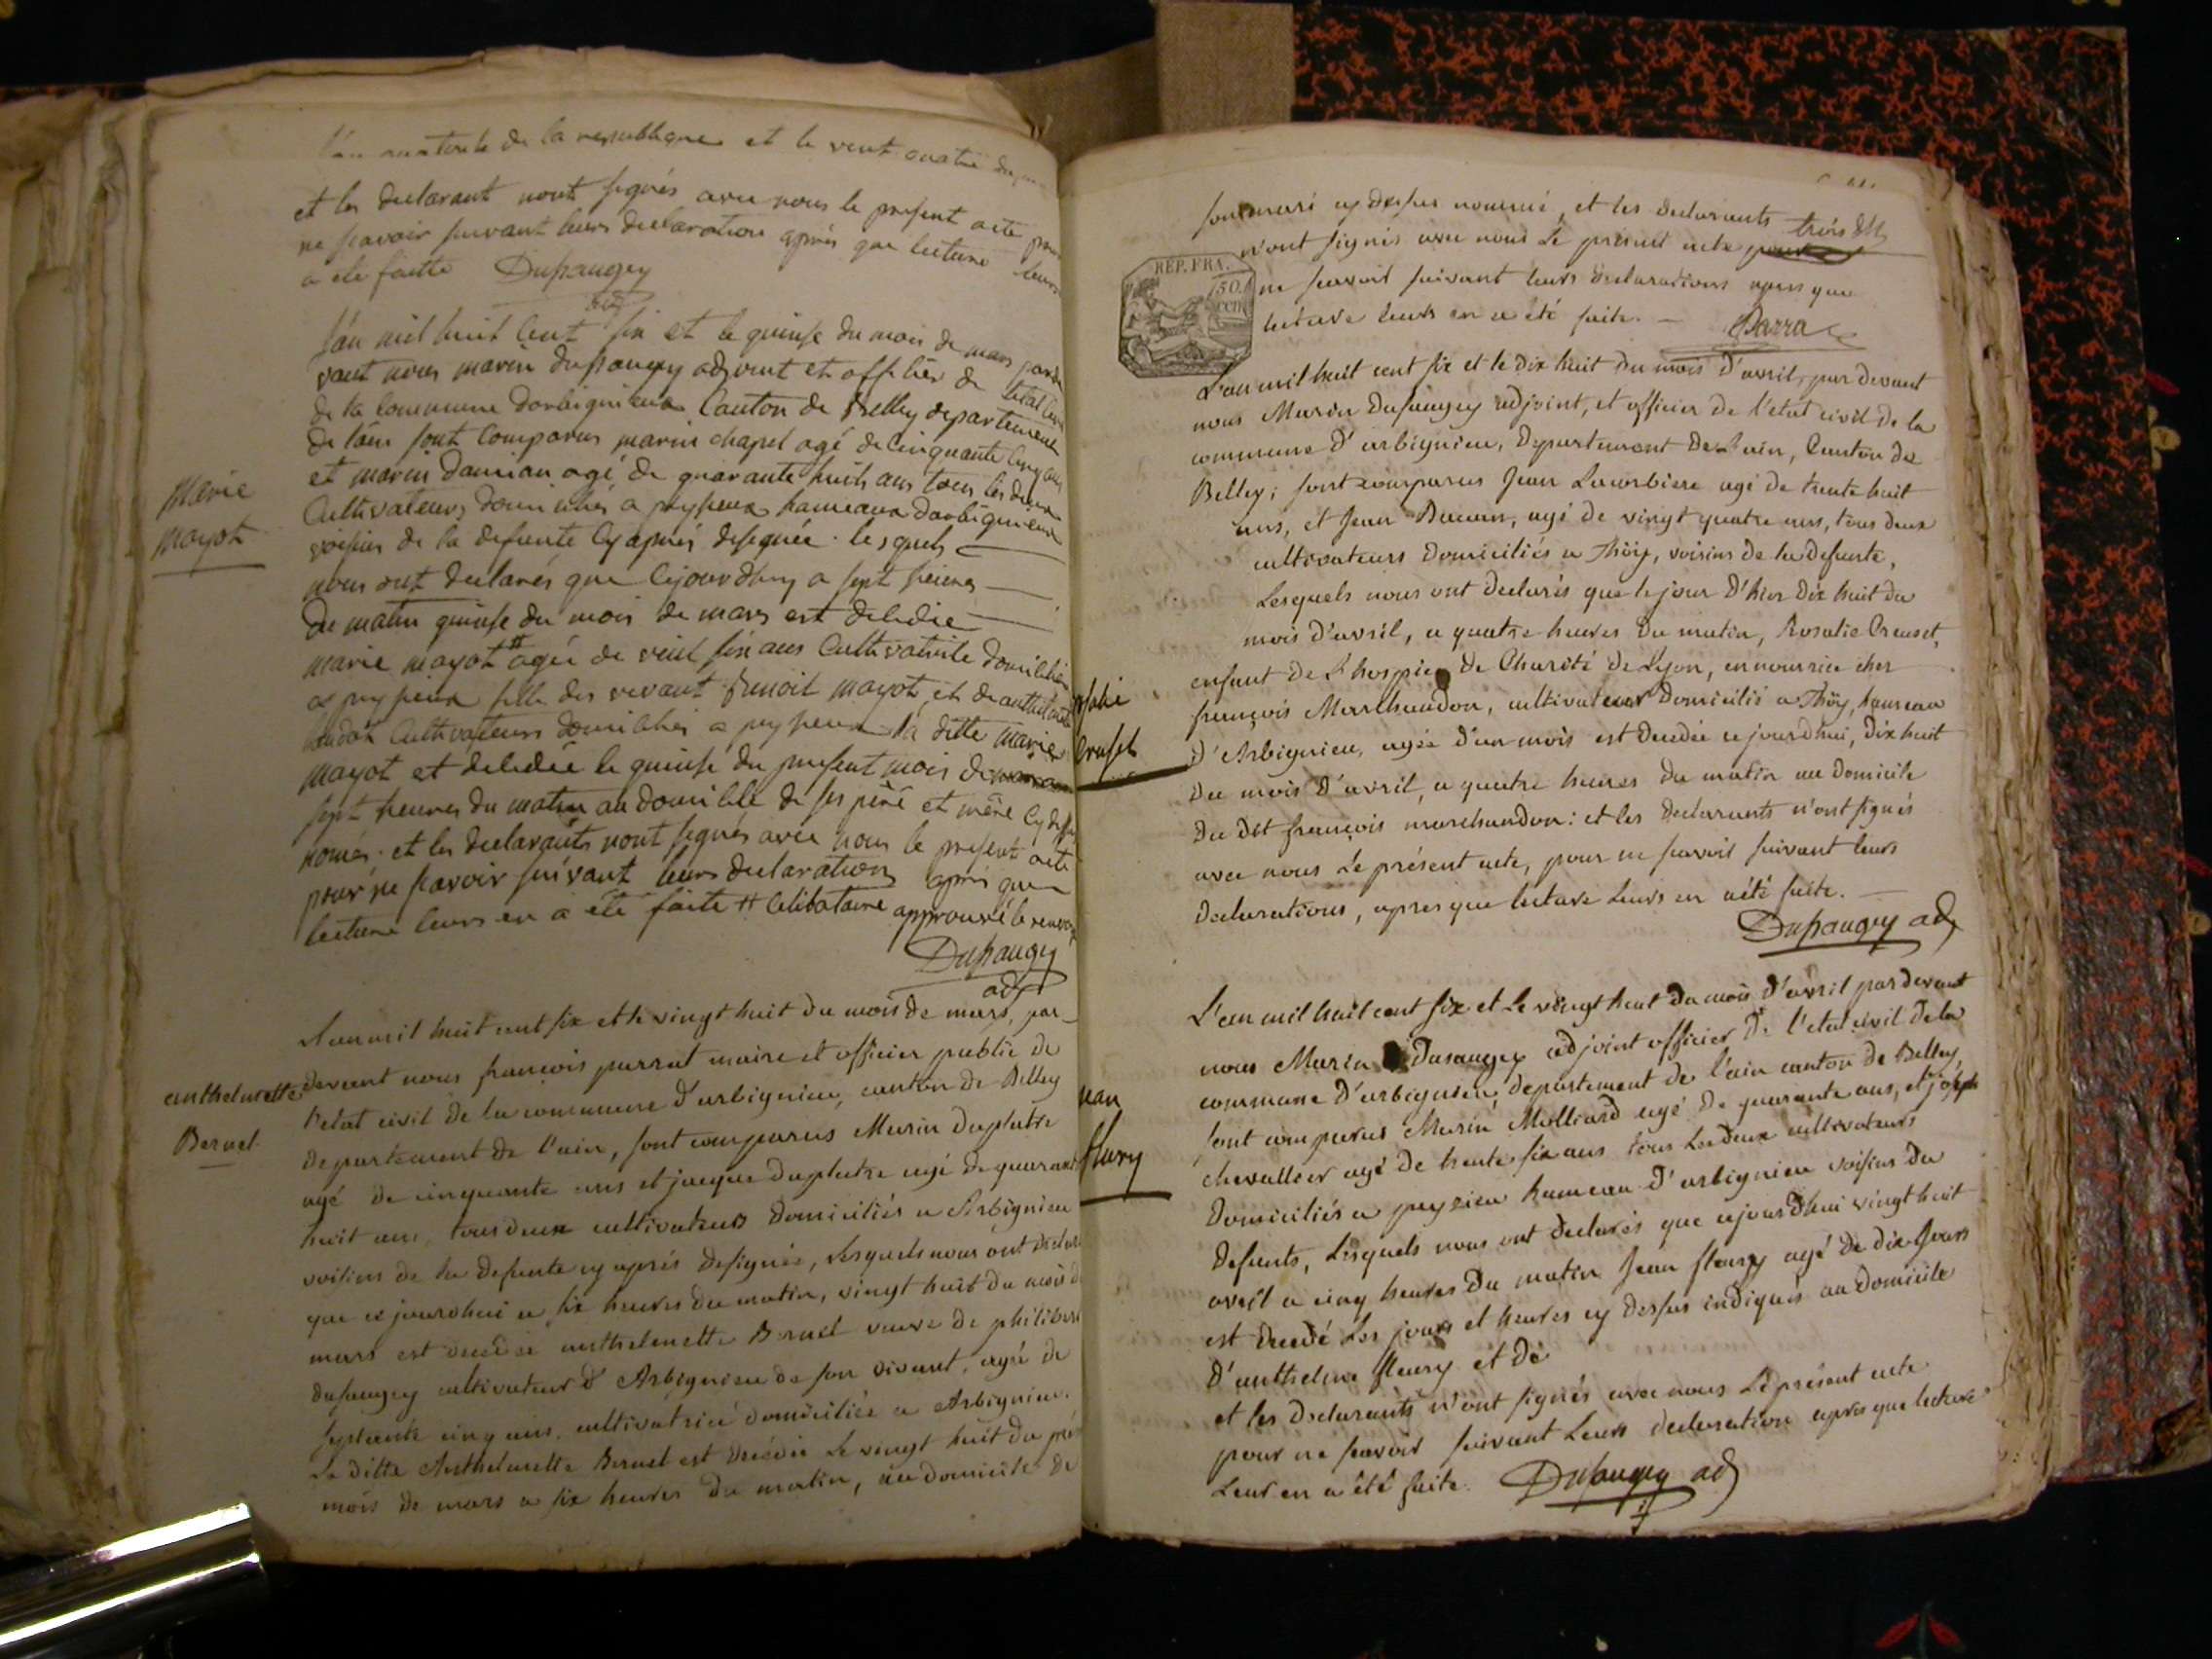 de la republique et le vent quatre
et les declarant nont signés avec nous le present acte pour
ne scavoir suivant leurs declaration après que lecture leurs
a ete faitte Dusaugey
adj
Lan mil huit Cent six et le quinse du mois de mars parde
vant nous marin dusaugey adjoint et officier de letat Civil
de la Commune darbignieux Canton de Belley departement
de lain sont Comparus marin chapel agé de Cinquante Cinq ans
et marin Damian agé de quarante huit ans tous les deux
Cultivateurs domiciliés a peysieux hameaux darbignieux
voisins de la defunte Cy après designée lesquels
nous ont declarés que Cejourdhuy a sept heures
du matin quinse du mois de mars est deledie
marie mayot # agée de vint six ans Cultivatrice domiciliée
a peysieux fille des vivant Benoit mayot et de anthelmette
Cultivateurs domiciliés a peysieux la ditte marie
mayot et deledée le quinse du present mois de
sept heures du matin au domicile de ses père et mère Cy dessus
només et les declarants nont signés avec nous le present acte
pour ne scavoir suivant leurs declaration après que
lecture leurs en a été faite # Celibataire approuvé le renvoy
Dusaugey
adj
Marie
Mayot
L'an mil huit cent six et le vingt huit du mois de mars, par-
devant nous françois parrat maire et officier public de
l'etat civil de la commune d'arbignieu, canton de Belley
departement de l'ain, sont comparus Marin Duplatre
agé de cinquante ans et jacques Duplatre agé de quarante
huit ans, tous deux cultivateurs domiciliés a Arbignieu
voisins de la defunte cy après designée, Lesquels nous ont declaré
que ce jourdhui a six heures du matin, vingt huit du mois de
mars est decedée anthelmette Bernel veuve de philibert
dusaugey cultivateur d'Arbignieu de son vivant, agée de
septante cinq ans, cultivatrice domiciliée a Arbignieu.
La ditte Anthelmette Bernel est décédée Le vingt huit du présent
mois de mars a six heures du matin, au domicile de
anthelmette
Bernel
son mari cy dessus nommé, et les declarants trois dtt
n'ont signés avec nous Le présent acte pour
ne scavoir suivant leurs declarations apres que
lecture leurs en a été faite. — Parra
REP. FRA.
50
cen
L'an mil huit cent six et le dix huit du mois d'avril, par devant
nous Marin Dusaugey adjoint, et officier de l'etat civil de la
commune d'arbignieu, Departement de L'ain, Canton de
Belley; sont comparus Jean Lacorbiere agé de trente huit
ans, et Jean Bucain, agé de vingt quatre ans, tous deux
cultivateurs domiciliés a Thöy, voisins de la defunte,
Lesquels nous ont declarés que le jour d'hier dix huit du
mois d'avril, a quatre heures du matin, Rosalie Creuset,
enfant de L'hospice de Charité de Lyon, en nourrice chez
françois Marchandon, cultivateur domicilié a Thöy, hameau
d'Arbignieu, agée d'un mois est decedée cejourdhui, dix huit
du mois d'avril, a quatre heures du matin au domicile
du dit françois marchandon: et les declarants n'ont signés
avec nous Le présent acte, pour ne scavoir suivant leurs
declarations, apres que lecture Leurs en a été faite.
Dusaugey adj
Creuset
L'an mil huit cent six et Le vingt huit du mois d'avril par devant
nous Marin Dusaugey adjoint officier de l'etat civil de la
commune d'arbignieu, departement de l'ain canton de Belley,
sont comparus Marin Molliard agé de quarante ans, et joseph
chevallier agé de trente six ans tous Les deux cultivateurs
domiciliés a peyzieu hameau d'arbignieu voisins du
defunts, Lesquels nous ont declarés que cejourdhui vingt huit
avril a cinq heures du matin Jean fleury agé de dix Jours
est decedé Les jours et heures cy dessus indiqués au domicile
d'anthelme fleury et de
et les declarants n'ont signés avec nous Le présent acte
pour ne scavoir suivant Leurs declaration après que lecture
Leur en a été faite. Dusaugey adj
Jean
fleury